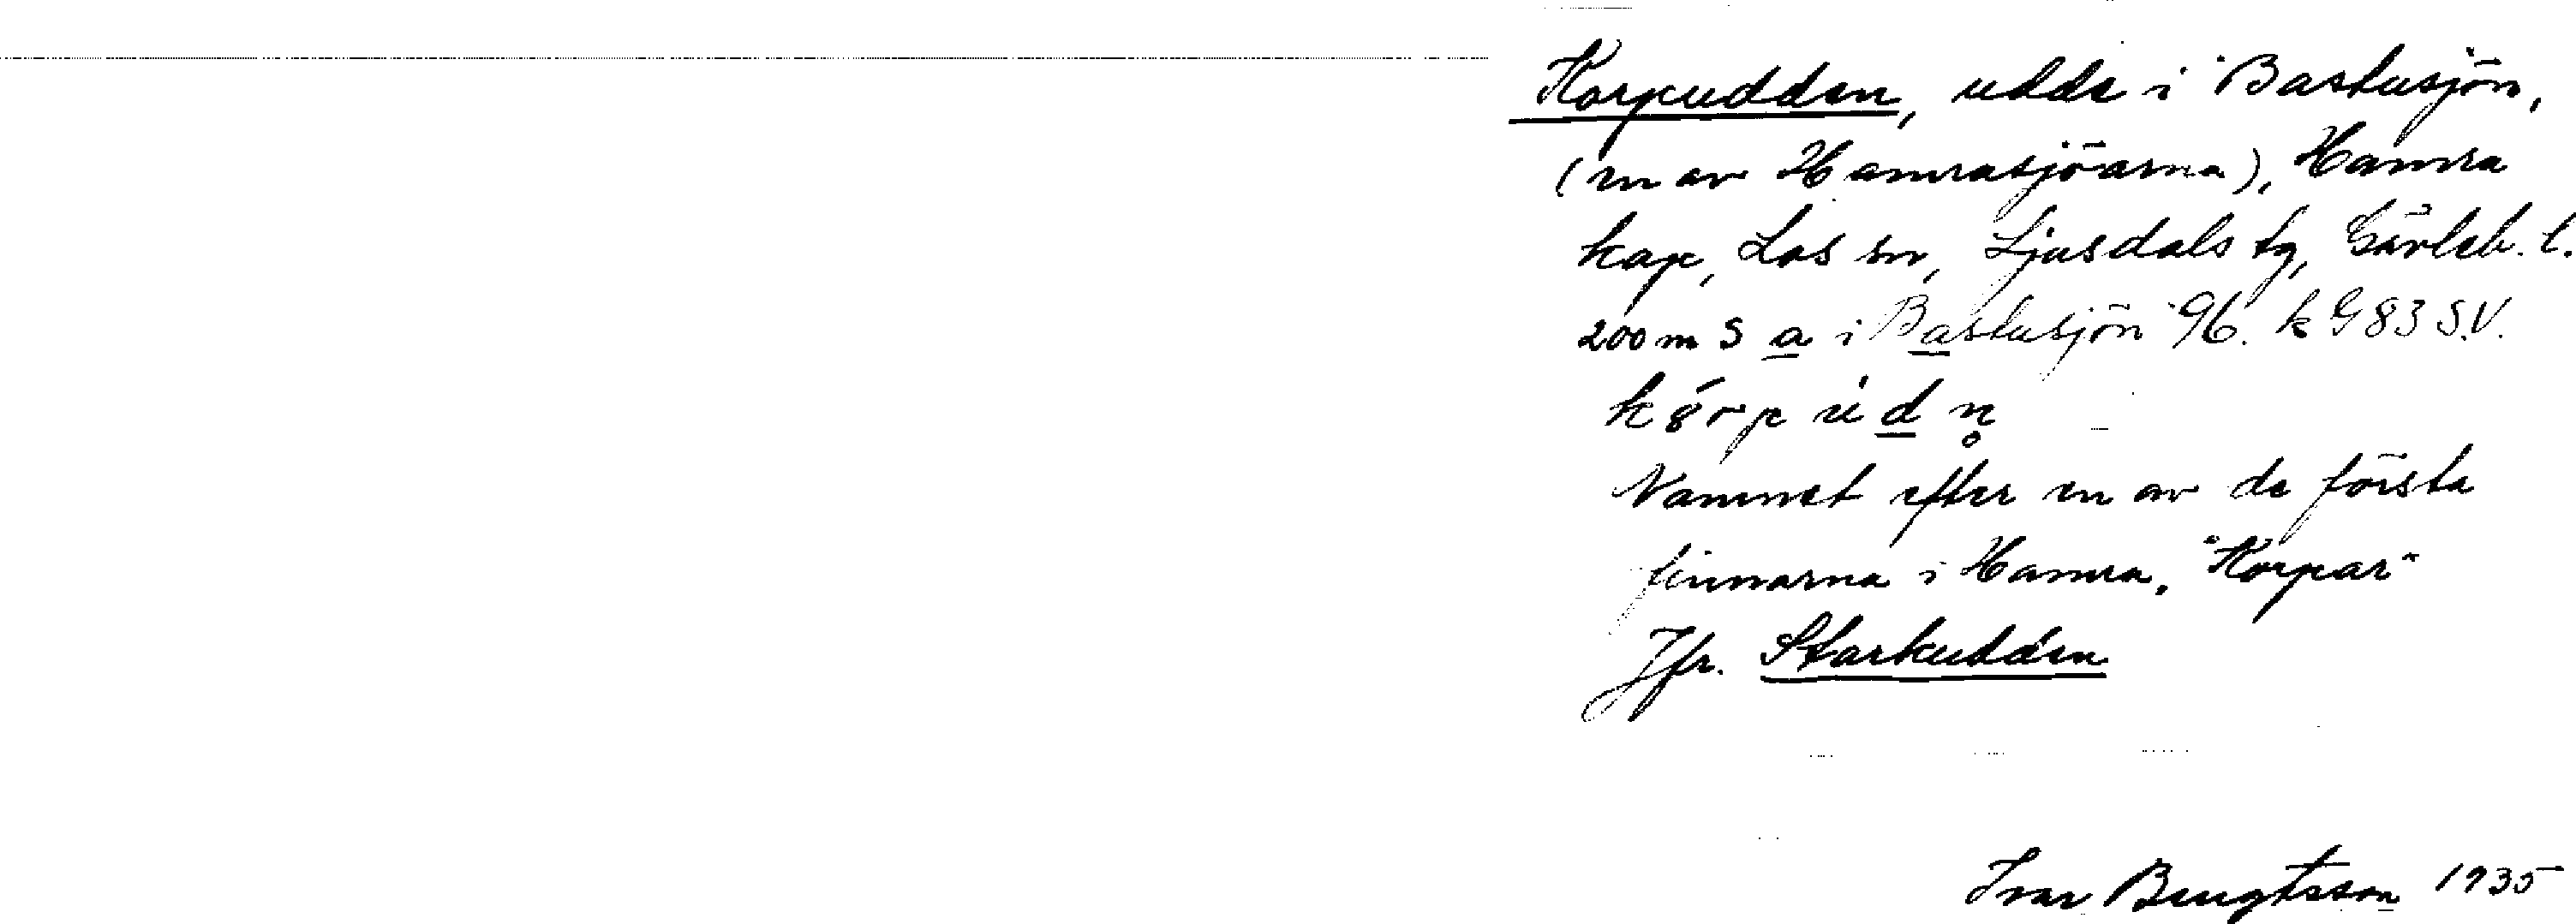 Korpudden, udde i Bastusjön,
(en av Hamrasjöarna), Hamra
kap, Los sn, Ljusdals tg, Gävleb. l.
200 m S a i Bastusjön 96. k G 83 S.V.
Namnet efter en av de första
finnarna i Hamra, "Korpar"
Jfr. Starkudden
Ivar Bengtsson 1935